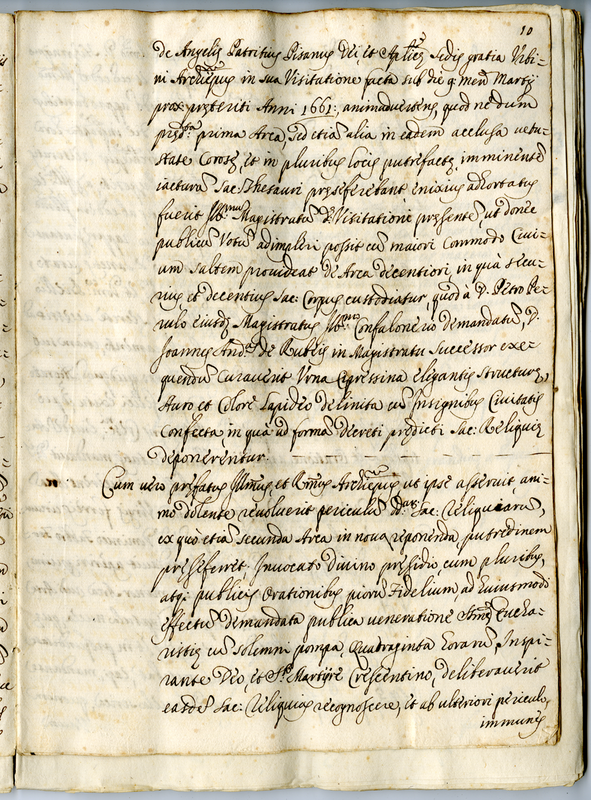 10
de Angelis Patritius Pisanus Dei, et Aplicę Sedis gratia Urbi-
ni Archiepus in sua Visitatione facta sub die 9: mens Martij
prox: pręteriti Anni 1661: animadvertens, quod ne dum
prędta prima Arca, sed etiā alia in eadem acclusa vetu-
state Corosę, et in pluribus locis putrefactę imminentē
iacturā Sac: Thesauri pręseferebant, enixius adhortatus
fuerit Magistratū Visitationi pręsentē, ut donec
publicū Votū adimpleri possit cū maiori Commodo Civi-
um saltem provideat de Arca decentiori, in quà secu-
rius et decentius Sac: Corpus custodiatur, quod à D. Petro
eiusdē Magistratus Confalonerio demandatū, D.
Joannes Andrs de Rubeis in Magistratu Successor exe-
quendū curaverit Urna Cipressina elegantis Structurę,
Auro et Colore Lapideo delinita cū Insignibus Civitatis
Confecta in quà ad formā Decreti prędicti Sac: Reliquię
deponerentur.
Cum vero pręfatus Illmus, et Rmus Archiepus ut ipse asseruit, ani-
mo dolente revolverit periculū Sac: Reliquiarū,
ex quo etiā secunda Arca in nova reponenda, putredinem
pręseferret, Invocato Divino pręsidio cum pluribus,
atq: publicis Orationibus piorū Fidelium, ad huiusmodi
effectū demandata publica veneratione Eucha-
ristię cū solemni pompa, Quatraginta horarū, Inspi-
rante Deo, et Sto Martyre Crescentino, deliberaverit
easdē Sac: Reliquias recognoscere, et ab ulteriori periculo
immunes